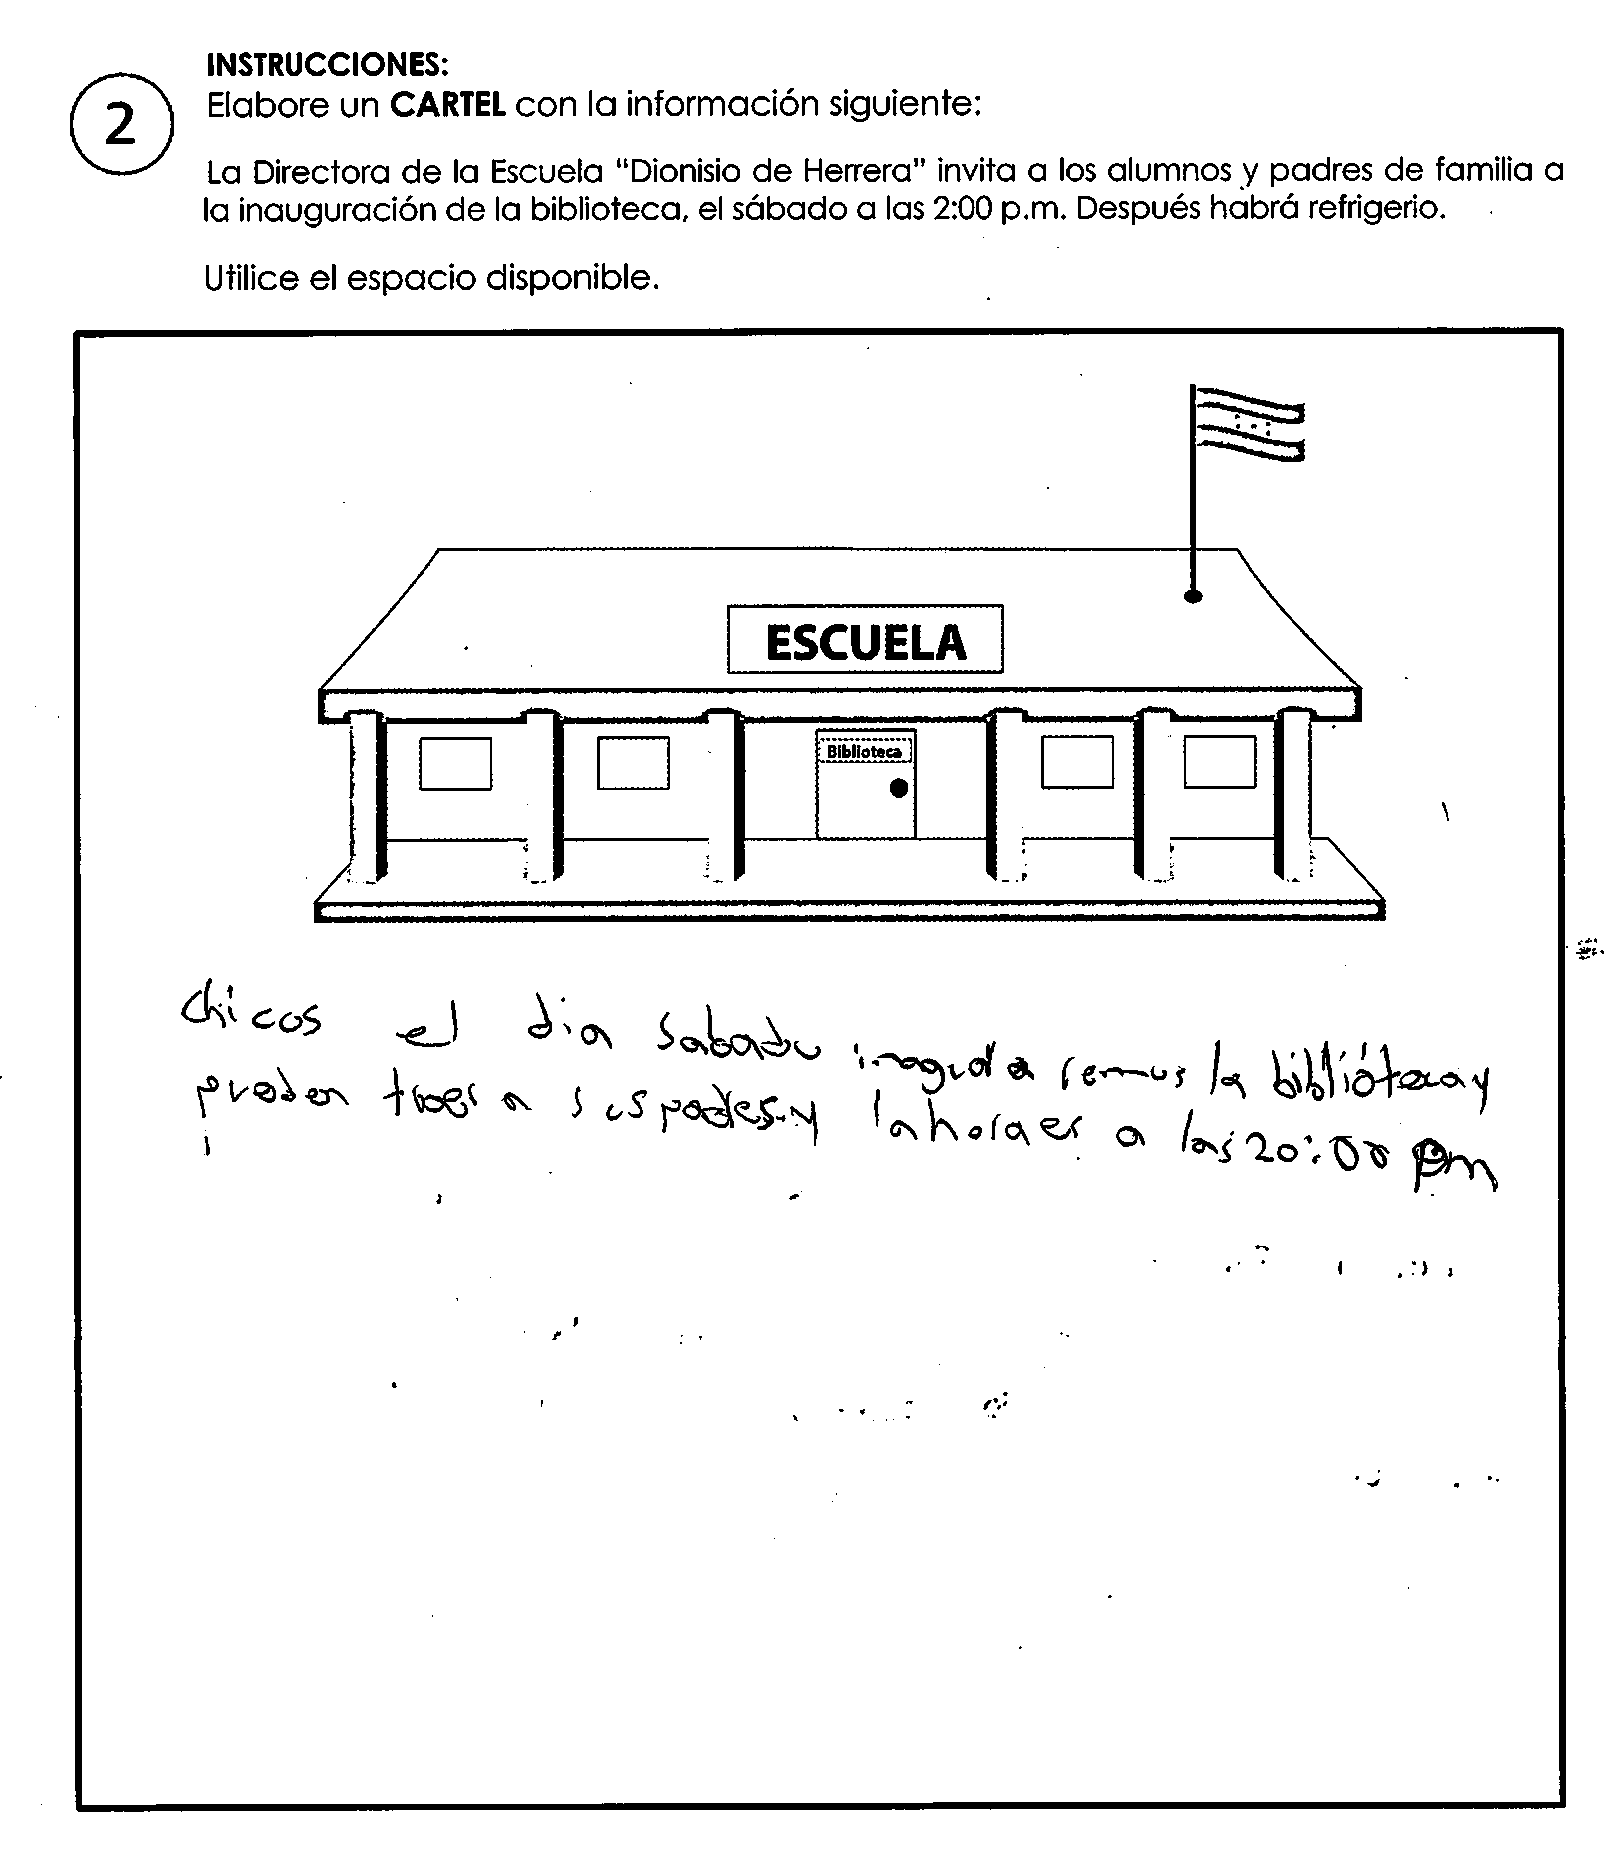 INSTRUCCIONES:
2
Elabore un CARTEL con la información siguiente:
La Directora de la Escuela "Dionisio de Herrera" invita a los alumnos y padres de familia a
la inauguración de la biblioteca, el sábado a las 2:00 p.m. Después habrá refrigerio.
Utilice el espacio disponible.
ESCUELA
Biblioteca
chicos el dia sabado inagurda remos la biblióteca y
pueden traer a sus padres y la hora es a las 20:00 pm